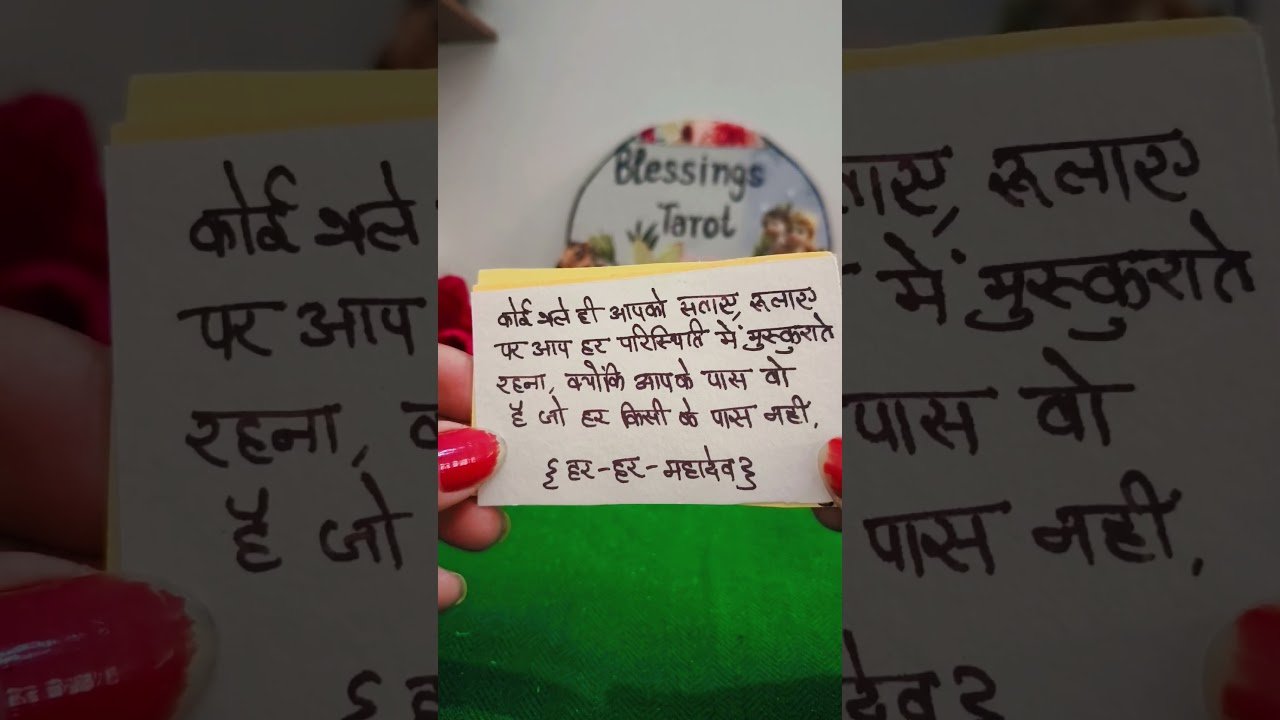 Blessings
Tarot
कोई भले ही आपको सताए, रूलाए
पर आप हर परिस्थिति में मुस्कुराते
रहना, क्योंकि आपके पास वो
है जो हर किसी के पास नहीं,
{हर-हर-महादेव}